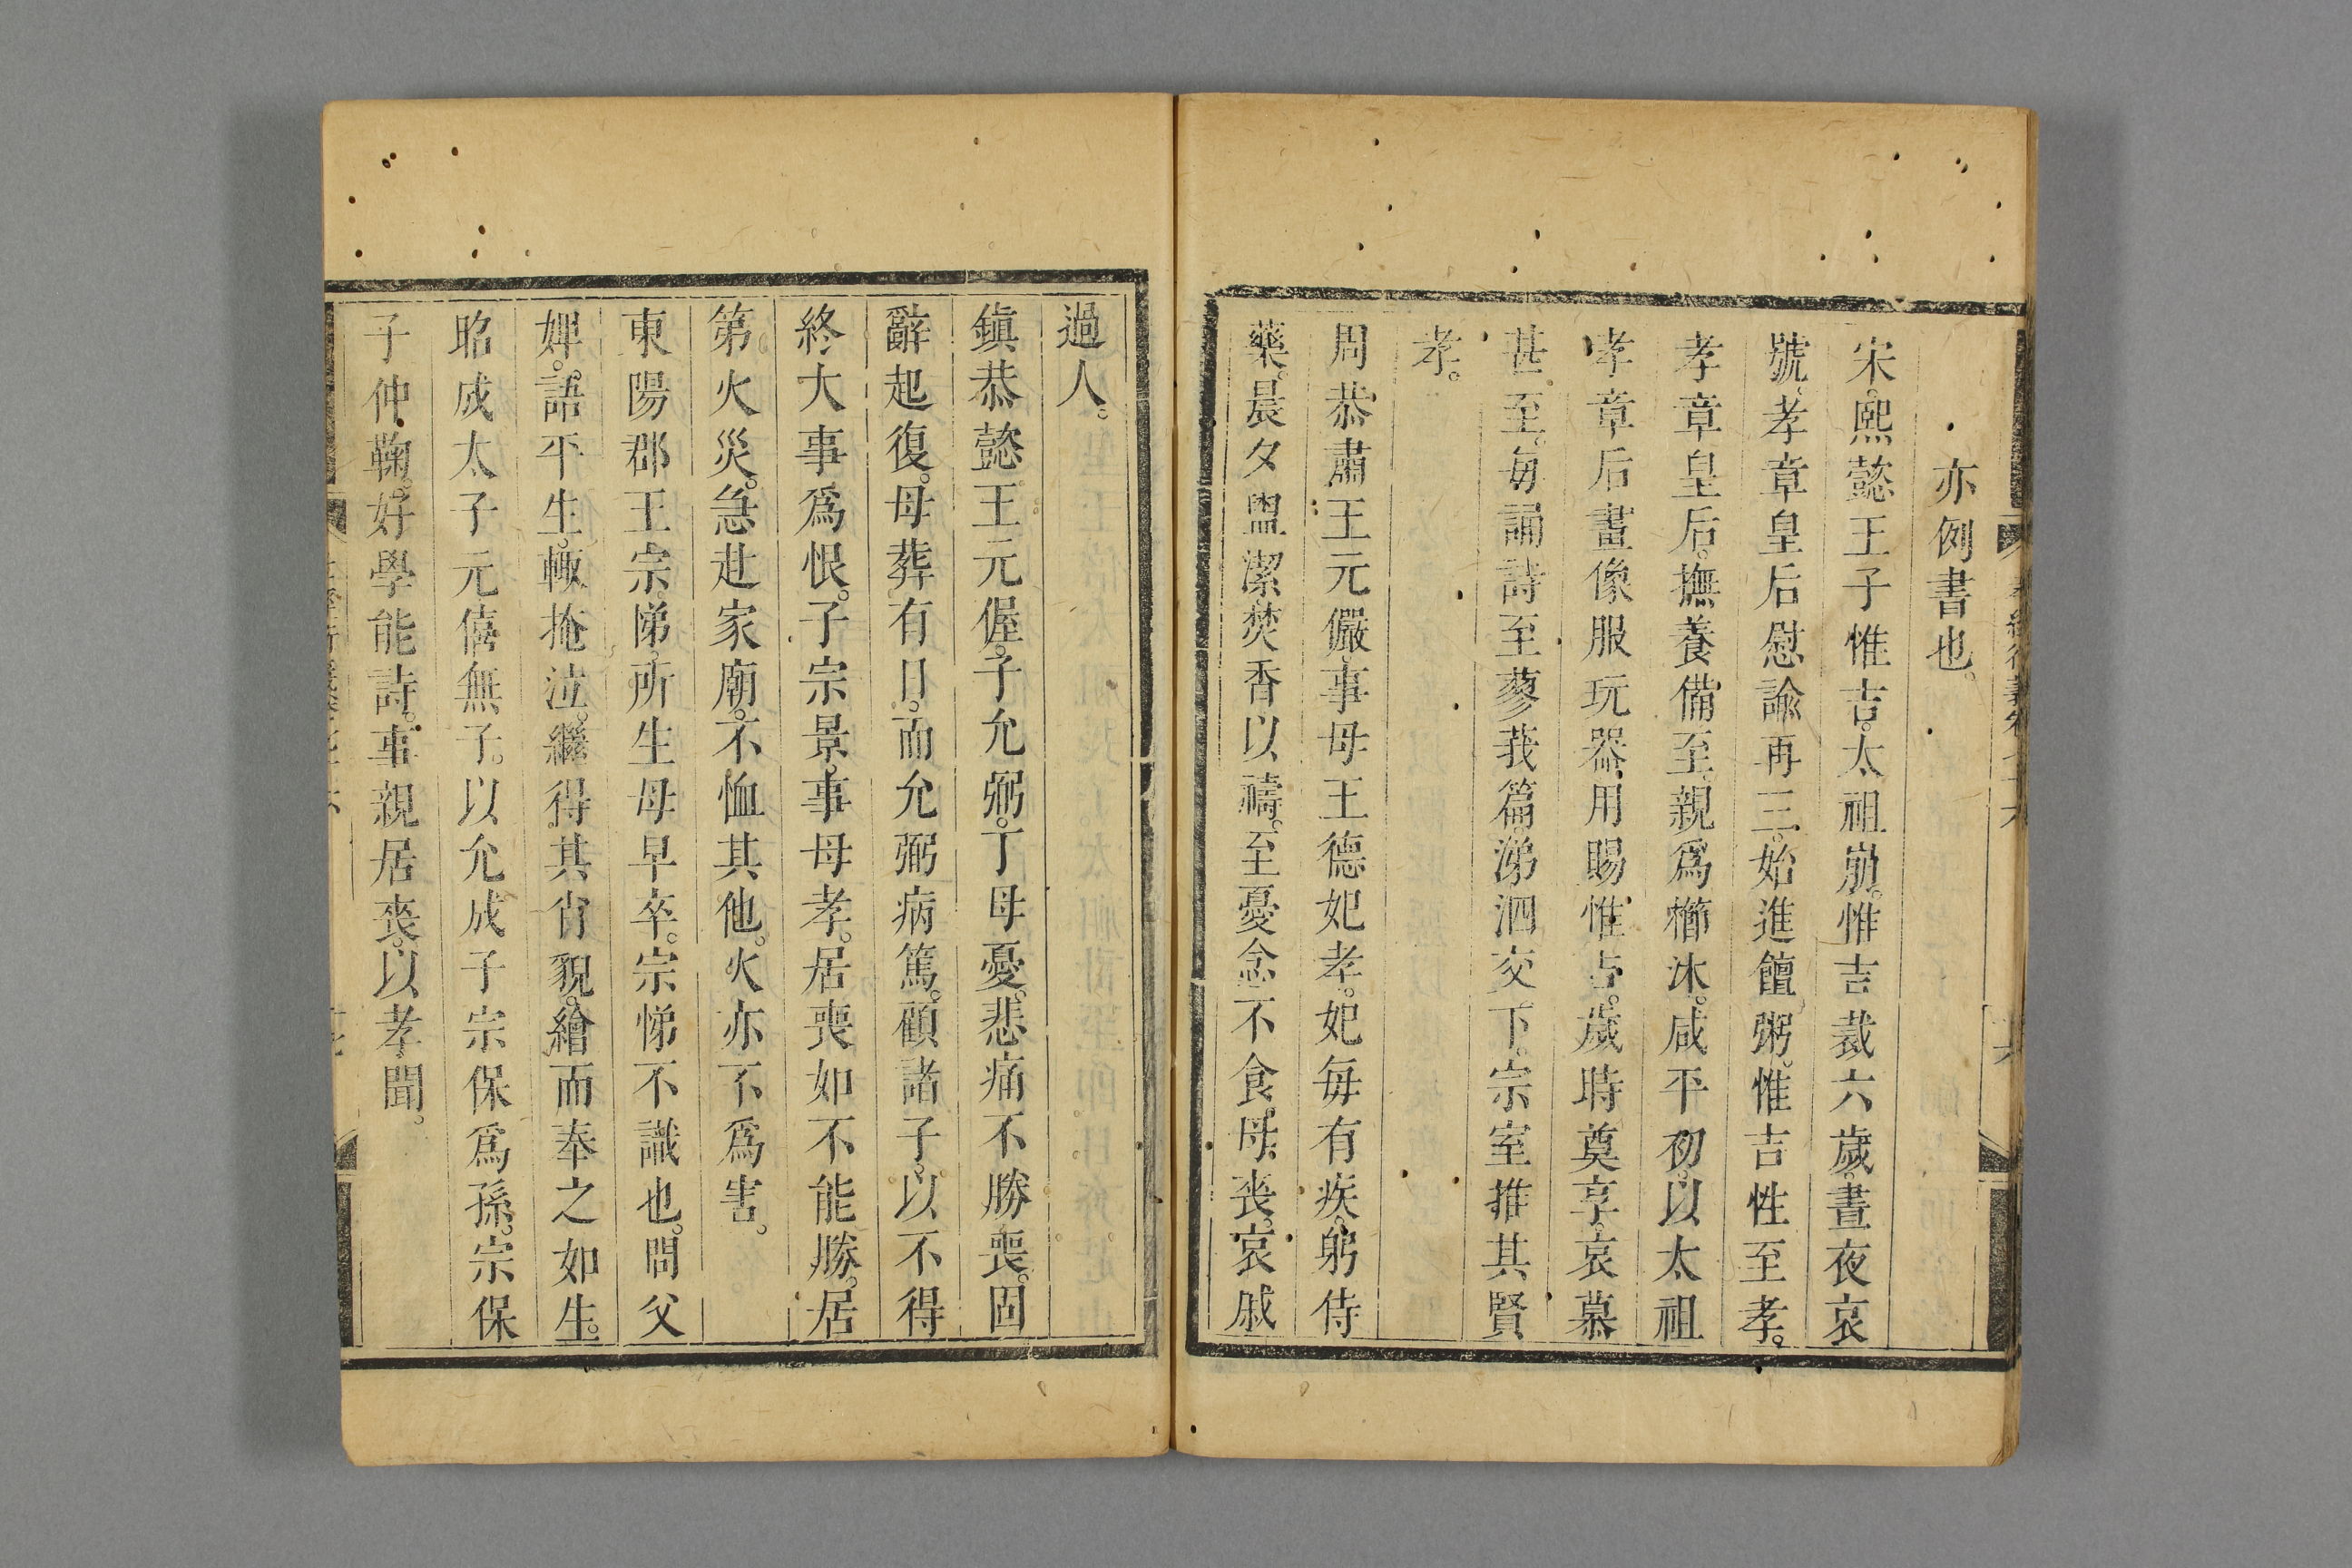 亦例書也。
宋。熙懿王子惟吉。太祖崩。惟吉裁六歲。晝夜哀
號。孝章皇后慰諭再三。始進饘粥。惟吉性至孝。
孝章皇后。撫養備至。親爲櫛沐。咸平初。以太祖
孝章后畫像服玩器用賜惟吉。歲時奠享。哀慕
甚至。每誦詩至蓼莪篇。涕泗交下。宗室推其賢
孝。
周恭肅王元儼。事母王德妃孝。妃每有疾。躬侍
藥。晨夕盥潔焚香以禱。至憂念不食。母喪。哀戚
過人。
鎮恭懿王元偓。子允弼。丁母憂。悲痛不勝喪。固
辭起復。母葬有日。而允弼病篤。顧諸子。以不得
終大事爲恨。子宗景。事母孝。居喪如不能勝。居
第火災。急赴家廟。不恤其他。火亦不爲害。
東陽郡王宗悌。所生母早卒。宗悌不識也。問父
婢。語平生。輒掩泣。繼得其肖貌。繪而奉之如生。
昭成太子元僖無子。以允成子宗保爲孫。宗保
子仲鞠。好學能詩。事親居喪。以孝聞。